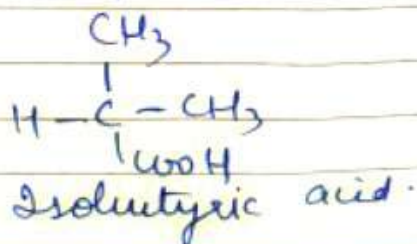 CH3
H - C - CH3
COOH
Isobutyric acid.